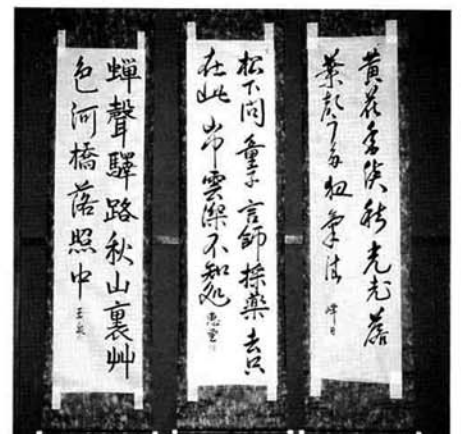 黄花香淡秋光老落
葉声多夜氣清
松下問童子言師採藥去只
在此山雲深不知処
蟬聲驛路秋山裏艸
色河橋落照中